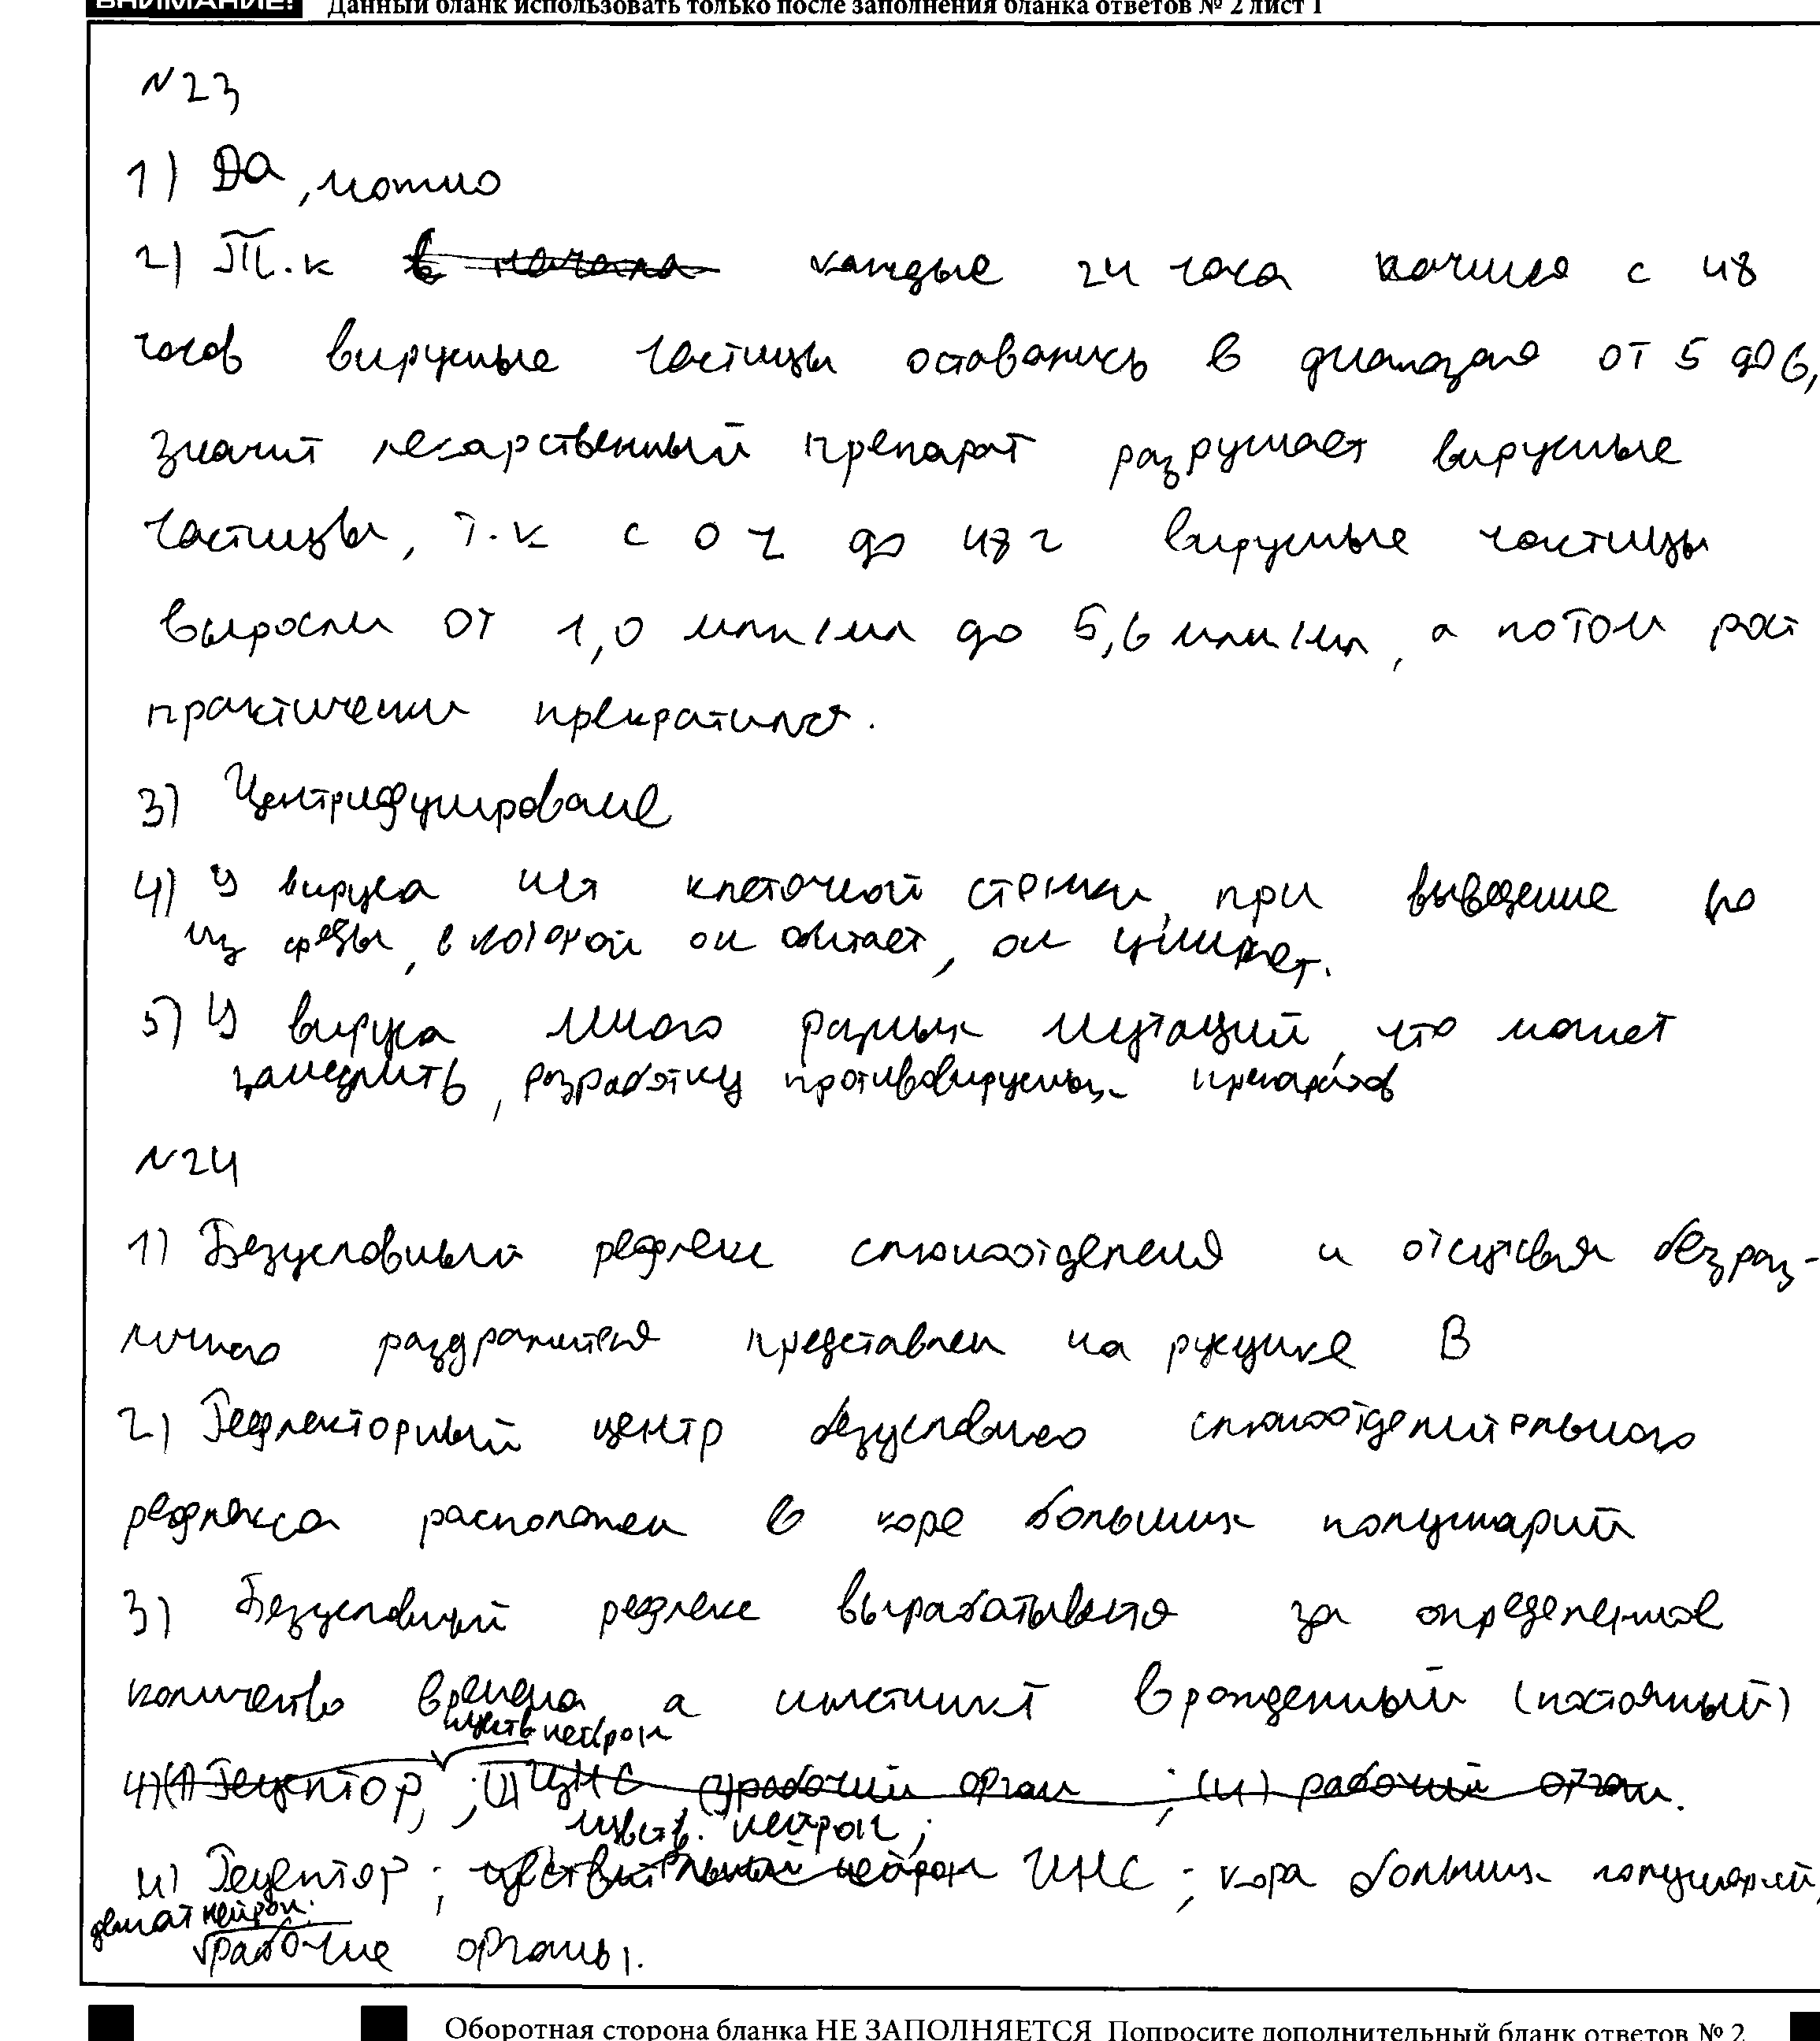 ВНИМАНИЕ! Данный бланк использовать только после заполнения бланка ответов № 2 лист 1
№23
1) Да, можно
2) Т.к в начала каждые 24 часа начиная с 48
часов вирусные частицы оставались в диапазоне от 5 до 6,
значит лекарственный препарат разрушает вирусные
частицы, т.к с 0 ч до 48 ч вирусные частицы
выросли от 1,0 млн/мл до 5,6 млн/мл, а потом рост
практически прекратился.
3) Центрифугирование
4) У вируса нет клеточной стенки, при выведение его
из среды, в которой он обитает, он умирает.
5) У вируса много разных мутаций, что может
замедлить, разработку противовирусных препаратов
№24
1) Безусловный рефлекс слюноотделения и отсутствия безраз-
личного раздражителя представлен на рисунке В
2) Рефлекторный центр безусловного слюноотделительного
рефлекса расположен в коре больших полушарий
3) Безусловный рефлекс вырабатывается за определенное
количество времени а инстинкт врожденный (постоянный)
чувств нейрон
4) (1) Рецептор, ; (2) ЦНС (3) рабочий орган ; (4) рабочий орган.
чувств. нейрон;
4) Рецептор ; чувствительный нейрон ЦНС ; кора больших полушарий,
двигат нейрон.
рабочие органы.
Оборотная сторона бланка НЕ ЗАПОЛНЯЕТСЯ Попросите дополнительный бланк ответов № 2